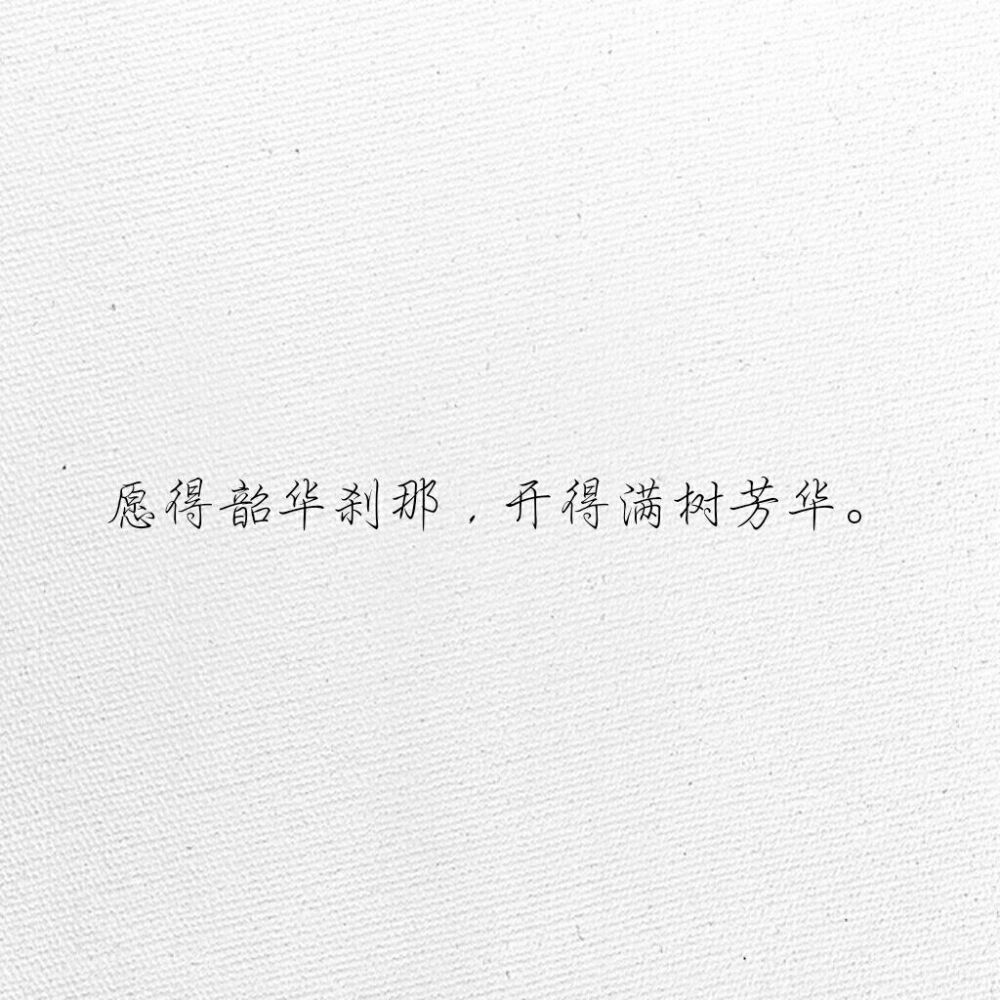 愿得韶华刹那，开得满树芳华。